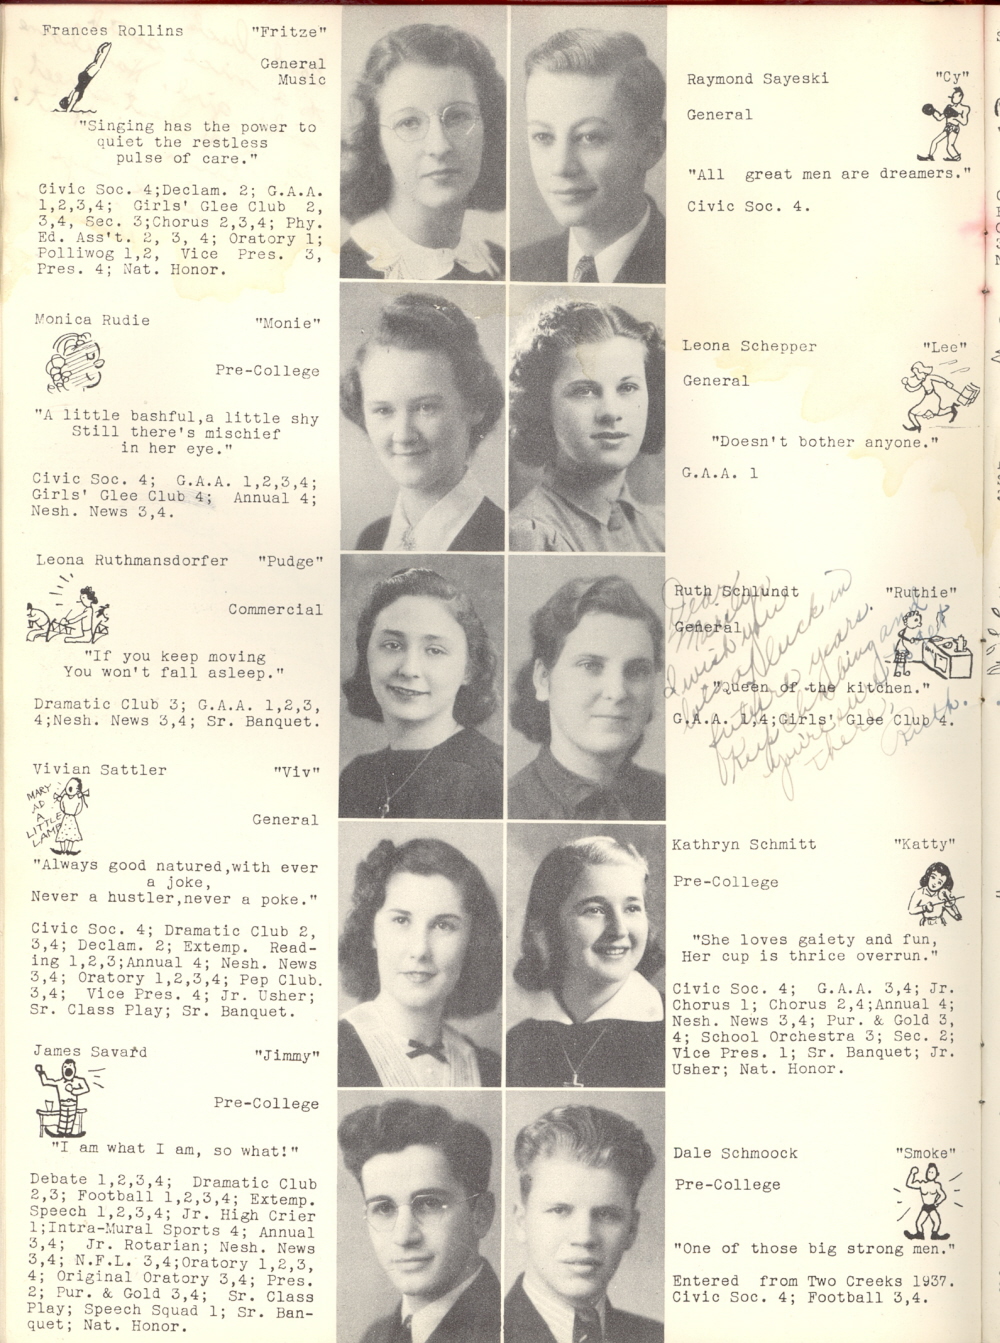 Frances Rollins "Fritze"
General
Music
"Singing has the power to
quiet the restless
pulse of care."
Civic Soc. 4;Declam. 2; G.A.A.
1,2,3,4; Girls' Glee Club 2,
3,4, Sec. 3;Chorus 2,3,4; Phy.
Ed. Ass't. 2, 3, 4; Oratory 1;
Polliwog 1,2, Vice Pres. 3,
Pres. 4; Nat. Honor.
Monica Rudie "Monie"
Pre-College
"A little bashful,a little shy
Still there's mischief
in her eye."
Civic Soc. 4; G.A.A. 1,2,3,4;
Girls' Glee Club 4; Annual 4;
Nesh. News 3,4.
Leona Ruthmansdorfer "Pudge"
Commercial
"If you keep moving
You won't fall asleep."
Dramatic Club 3; G.A.A. 1,2,3,
4;Nesh. News 3,4; Sr. Banquet.
Vivian Sattler "Viv"
MARY
AD
A
LITTLE
LAMP
General
"Always good natured,with ever
a joke,
Never a hustler,never a poke."
Civic Soc. 4; Dramatic Club 2,
3,4; Declam. 2; Extemp. Read-
ing 1,2,3;Annual 4; Nesh. News
3,4; Oratory 1,2,3,4; Pep Club.
3,4; Vice Pres. 4; Jr. Usher;
Sr. Class Play; Sr. Banquet.
James Savard "Jimmy"
Pre-College
"I am what I am, so what!"
Debate 1,2,3,4; Dramatic Club
2,3; Football 1,2,3,4; Extemp.
Speech 1,2,3,4; Jr. High Crier
1;Intra-Mural Sports 4; Annual
3,4; Jr. Rotarian; Nesh. News
3,4; N.F.L. 3,4;Oratory 1,2,3,
4; Original Oratory 3,4; Pres.
2; Pur. & Gold 3,4; Sr. Class
Play; Speech Squad 1; Sr. Ban-
quet; Nat. Honor.
Raymond Sayeski "Cy"
General
"All great men are dreamers."
Civic Soc. 4.
Leona Schepper "Lee"
General
"Doesn't bother anyone."
G.A.A. 1
Ruth Schlundt "Ruthie"
General
"Queen of the kitchen."
G.A.A. 1,4;Girls' Glee Club 4.
Dear
I wish you
lots of luck in
future years.
Keep climbing and
you're sure to get
there.
Ruth.
Kathryn Schmitt "Katty"
Pre-College
"She loves gaiety and fun,
Her cup is thrice overrun."
Civic Soc. 4; G.A.A. 3,4; Jr.
Chorus 1; Chorus 2,4;Annual 4;
Nesh. News 3,4; Pur. & Gold 3,
4; School Orchestra 3; Sec. 2;
Vice Pres. 1; Sr. Banquet; Jr.
Usher; Nat. Honor.
Dale Schmoock "Smoke"
Pre-College
"One of those big strong men."
Entered from Two Creeks 1937.
Civic Soc. 4; Football 3,4.